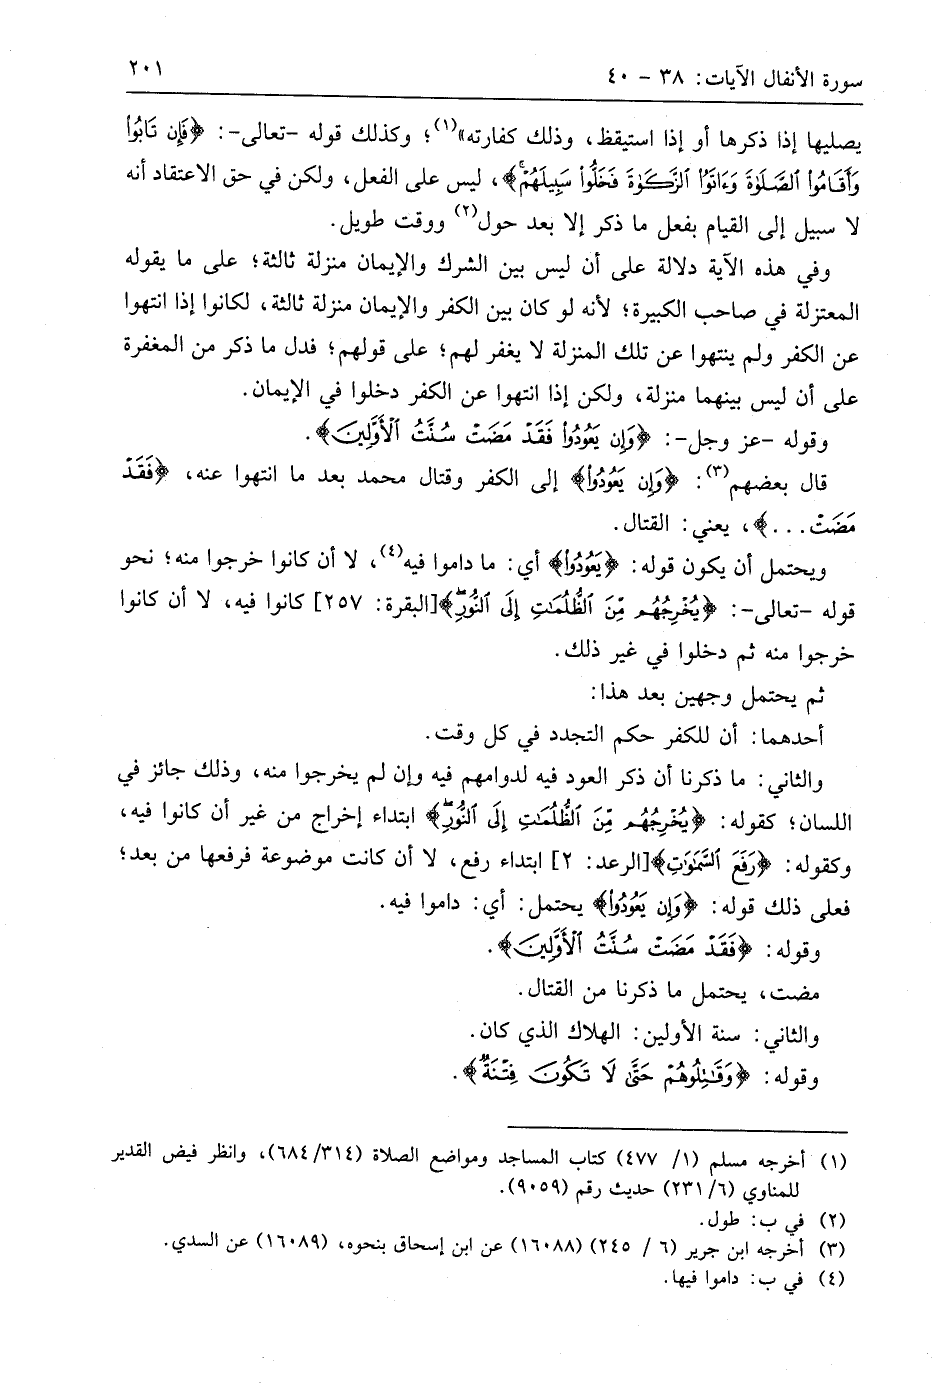 سورة الأنفال الآيات: ٣٨ - ٤٠
٢٠١
يصليها إذا ذكرها أو إذا استيقظ، وذلك كفارته»(١)؛ وكذلك قوله -تعالى-: ﴿فَإِن تَابُوا۟
وَأَقَامُوا۟ ٱلصَّلَوٰةَ وَءَاتَوُا۟ ٱلزَّكَوٰةَ فَخَلُّوا۟ سَبِيلَهُمْ﴾، ليس على الفعل، ولكن في حق الاعتقاد أنه
لا سبيل إلى القيام بفعل ما ذكر إلا بعد حول(٢) ووقت طويل.
وفي هذه الآية دلالة على أن ليس بين الشرك والإيمان منزلة ثالثة؛ على ما يقوله
المعتزلة في صاحب الكبيرة؛ لأنه لو كان بين الكفر والإيمان منزلة ثالثة، لكانوا إذا انتهوا
عن الكفر ولم ينتهوا عن تلك المنزلة لا يغفر لهم؛ على قولهم؛ فدل ما ذكر من المغفرة
على أن ليس بينهما منزلة، ولكن إذا انتهوا عن الكفر دخلوا في الإيمان.
وقوله -عز وجل-: ﴿وَإِن يَعُودُوا۟ فَقَدْ مَضَتْ سُنَّتُ ٱلْأَوَّلِينَ﴾.
قال بعضهم(٣): ﴿وَإِن يَعُودُوا۟﴾ إلى الكفر وقتال محمد بعد ما انتهوا عنه، ﴿فَقَدْ
مَضَتْ...﴾، يعني: القتال.
ويحتمل أن يكون قوله: ﴿يَعُودُوا۟﴾ أي: ما داموا فيه(٤)، لا أن كانوا خرجوا منه؛ نحو
قوله -تعالى-: ﴿يُخْرِجُهُم مِّنَ ٱلظُّلُمَٰتِ إِلَى ٱلنُّورِ﴾[البقرة: ٢٥٧] كانوا فيه، لا أن كانوا
خرجوا منه ثم دخلوا في غير ذلك.
ثم يحتمل وجهين بعد هذا:
أحدهما: أن للكفر حكم التجدد في كل وقت.
والثاني: ما ذكرنا أن ذكر العود فيه لدوامهم فيه وإن لم يخرجوا منه، وذلك جائز في
اللسان؛ كقوله: ﴿يُخْرِجُهُم مِّنَ ٱلظُّلُمَٰتِ إِلَى ٱلنُّورِ﴾ ابتداء إخراج من غير أن كانوا فيه،
وكقوله: ﴿رَفَعَ ٱلسَّمَٰوَٰتِ﴾[الرعد: ٢] ابتداء رفع، لا أن كانت موضوعة فرفعها من بعد؛
فعلى ذلك قوله: ﴿وَإِن يَعُودُوا۟﴾ يحتمل: أي: داموا فيه.
وقوله: ﴿فَقَدْ مَضَتْ سُنَّتُ ٱلْأَوَّلِينَ﴾.
مضت، يحتمل ما ذكرنا من القتال.
والثاني: سنة الأولين: الهلاك الذي كان.
وقوله: ﴿وَقَٰتِلُوهُمْ حَتَّىٰ لَا تَكُونَ فِتْنَةٌ﴾.
(١) أخرجه مسلم (١/ ٤٧٧) كتاب المساجد ومواضع الصلاة (٦٨٤/٣١٤)، وانظر فيض القدير
للمناوي (٢٣١/٦) حديث رقم (٩٠٥٩).
(٢) في ب: طول.
(٣) أخرجه ابن جرير (٦ / ٢٤٥) (١٦٠٨٨) عن ابن إسحاق بنحوه، (١٦٠٨٩) عن السدي.
(٤) في ب: داموا فيها.